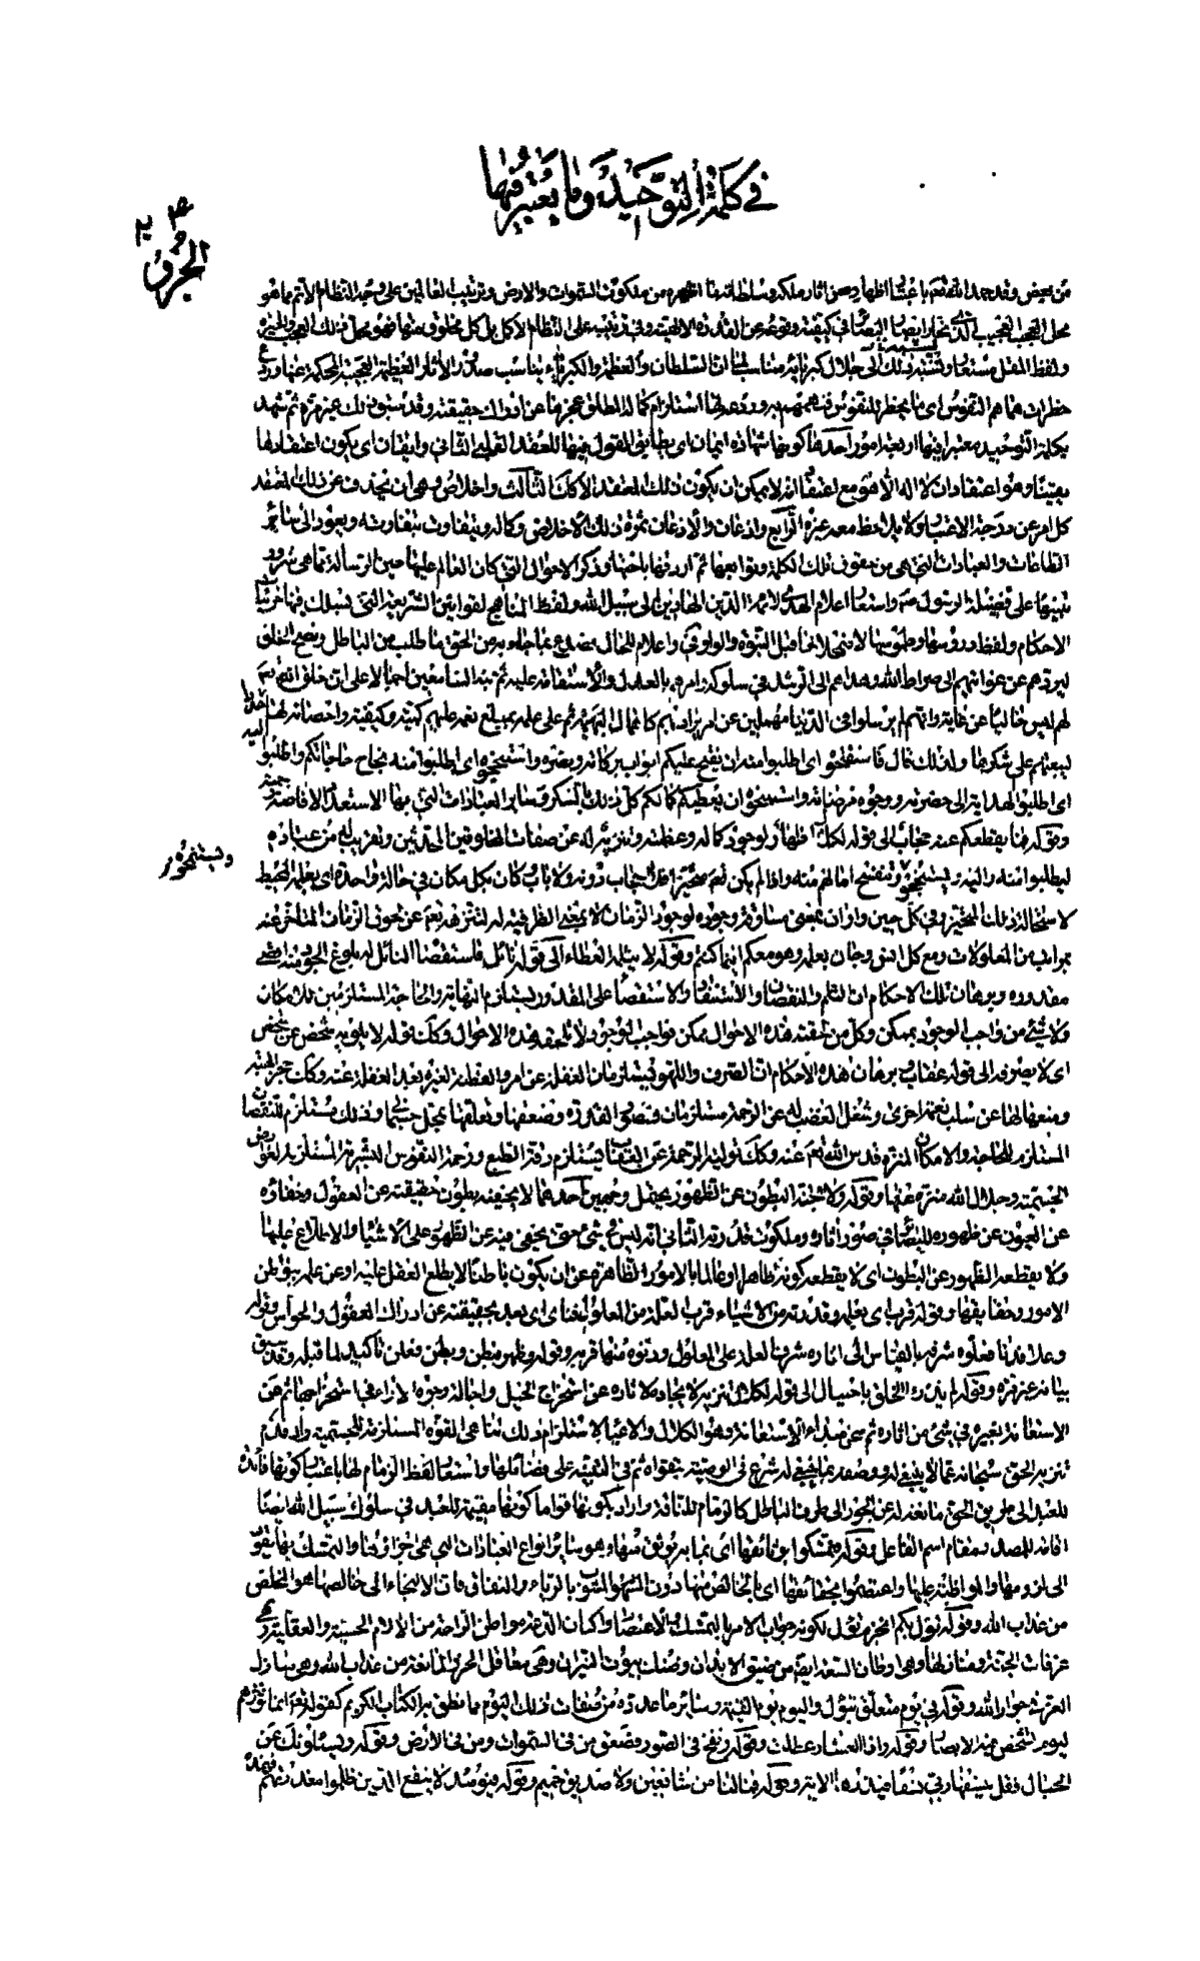 في كلمة التوحيد وما يعتبر فيها
الجزء
من بعض وقد حمد الله تعم باعتبار اظهاره من اثار ملكه وسلطانه ما اظهره من ملكوت السموات والارض وترتيب العالمين على وجه النظام الاتم مما هو
محل العجب العجيب الذي تحار ابصار البصائر في كيفية وقوعه عن القدرة الالهية وفي ترتيبه على النظام الاكمل بل كل مخلوق منها فهو محل ذلك العجب والحيرة
ولفظ المقل مستعار ونسب ذلك الى جلال كبريائه مناسبة لما ان السلطان والعظمة والكبرياء يناسب صدور الاثار العظيمة العجيبة المحكمة عنها وردع
خطرات هماهم النفوس اى ما يخطر للنفوس فتهمهم به وردعه لها استلزام كماله المطلق عجزها عن ادراك حقيقته وقد سبق ذلك غير مرة ثم شهد
بكلمة التوحيد معتبرا فيها اربعة امور احدها كونها شهادة ايمان اى يطابق القول فيها للعقد القلبي الثاني وايقان اى يكون اعتقادها
يقينا وهو اعتقاد ان لا اله الا هو مع اعتقاد انه لا يمكن ان يكون ذلك المعتقد الا كذلك الثالث واخلاص وهى ان يحذف عن ذلك المعتقد
كل امر عن درجة الاعتبار ولا يلاحظ معه غيره الرابع واذعان والاذعان ثمرة ذلك الاخلاص وكماله ويتفاوت بتفاوته ويعود الى سائر
الطاعات والعبادات التي هي من حقوق تلك الكلمة وتوابعها ثم اردفها باختها وذكر الاحوال التي كان العالم عليها حين الرسالة مما هي شرور
تنبيها على فضيلة الرسول ص واستعار اعلام الهدى لائمة الدين الهادين الى سبيل الله ولفظ المناهج لقوانين الشريعة التي يسلك فيها جزئيات
الاحكام ولفظ دروسها وطموسها لاضمحلالها قبل النبوة والواو في واعلام للحال يصدع بما جاء به من الحق ما طلب من الباطل ونصح الخلق
ليردهم عن غوايتهم الى صراط الله وهداهم الى الرشد في سلوكه وامرهم بالعدل والاستقامة عليه ثم نبه السامعين اجمالا على ان خلق الله تعم
لهم ليس خاليا عن غاية وانهم لم يرسلوا في الدنيا مهملين عن امر يراد بهم كاهمال البهيمة ثم على علمه بمبلغ نعمه عليهم كمية وكيفية واحصائه لها
ليبعثهم على شكرها ولذلك قال فاستفتحوه اى اطلبوا منه ان يفتح عليكم ابواب بركاته ونصره واستنجحوه اى اطلبوا منه نجاح حاجاتكم واطلبوا اليه
اى اطلبوا الهداية الى حضرته ووجوه مرضاته واستمنحوه ان يعطيكم كمالكم كل ذلك بالشكر وسائر العبادات التي بها الاستعداد لافاضة رحمته
وقوله فما يقطعكم عنه حجاب الى قوله لكل اظهار لوجود كماله وعظمته وتنزيه له عن صفات المخلوقين المحدثين وتقريب له من عباده
ليطلبوا منه واليه ويستنجحوه ويستفتح امالهم منه واذا لم يكن تعم متحيزا فلا حجاب دونه ولا باب وكان بكل مكان في حالة واحدة اى بعلمه المحيط
ويستنجحوه
لاستحالة ذلك المتحيز وفي كل حين واوان بمعنى مساوقة وجوده لوجود الزمان لا بمعنى الظرفية له لتنزهه تعم عن لحوق الزمان المتأخر عنه
بمراتب من المعلولات ومع كل انس وجان بعلمه وهو معكم اينما كنتم وقوله لا يثلمه العطاء الى قوله نائل فاستقصاء النائل له بلوغ الجود منه اقصى
مقدوره وبرهان تلك الاحكام ان الثلم والنقصان والاستنفاد والاستقصاء على المقدور يستلزم النهاية والحاجة المستلزمين للامكان
ولا شئ من واجب الوجود بممكن وكل من لحقته هذه الاحوال ممكن فواجب الوجود لا تلحقه هذه الاحوال وكذلك قوله لا يلويه شخص عن شخص
اى لا يصرفه الى قوله عقاب وبرهان هذه الاحكام ان الصرف واللهو يستلزمان الغفلة عن امر والفطنة لغيره بعد الغفلة عنه وكذلك حجز الهبة
ومنعها لها عن سلب نعمة اخرى وشغل الغضب له عن الرحمة مستلزمان لنقصان القدرة وضعفها وتعلقها بمحل جسماني وذلك مستلزم للنقصان
المستلزم للحاجة والامكان المنزه قدس الله تعم عنه وكذلك تولية الرحمة عن العقاب يستلزم رقة الطبع ورحمة النفوس البشرية المستلزمة لعوارض
الجسمية وجلال الله منزه عنها وقوله ولا يجنه البطون عن الظهور يحتمل وجهين احدهما لا يخفيه بطون حقيقته عن العقول وخفاؤه
عن العيون عن ظهوره للبصائر في صور اثاره وملكوت قدرته الثاني انه ليس في شئ حتى يخفى فيه عن الظهور على الاشياء والاطلاع عليها
ولا يقطعه الظهور عن البطون اى لا يقطعه كونه ظاهرا او عالما بالامور الظاهرة عن ان يكون باطنا لا يطلع العقل عليه او عن علمه ببواطن
الامور وحقايقها وقوله قرب اى بعلمه وقدرته من الاشياء قرب العلة من المعلول فنأى اى بعد بحقيقته عن ادراك العقول والحواس وقوله
وعلا فدنا فعلوه شرفه بالقياس الى اثاره شرف العلة على المعلول ودنوه منها قربه وقوله وظهر فبطن وبطن فعلن تاكيد لما قبله وقد سبق
بيانه غير مرة وقوله لم يذرء الخلق باحتيال الى قوله لكلال تنزيه لايجاده لاثاره عن استخراج الحيل واجالة وجوه الاراء في استخراجها ثم عن
الاستعانة بغيره في شئ من اثاره ثم عن مبدء الاستعانة وهو الكلال والاعياء لاستلزام ذلك تناهي القوة المستلزمة للجسمية واذ قدم
تنزيه الحق سبحانه عما لا ينبغي له ووصفه بما ينبغي له شرع في الوصية بتقواه ثم في التنبيه على فضائلها واستعار لفظ الزمام لها باعتبار كونها قائدة
للعبد الى طريق الحق مانعة له عن الجور الى طرف الباطل كالزمام للناقة واراد بكونها قواما كونها مقيمة للعبد في سلوك سبيل الله ايضا
اقامة للمصدر مقام اسم الفاعل وقوله فتمسكوا بوثائقها اى بما به يوثق منها وهو سائر انواع العبادات التي هي اجزاؤها والتمسك بها يقود
الى لزومها والمواظبة عليها واعتصموا بحقائقها اى بالخالص منها دون المشوب بالرياء والنفاق فان الالتجاء الى خالصها هو المخلص
من عذاب الله وقوله تؤل بكم الجزم تؤل لكونه جواب الامر بالتمسك والاعتصام واكنان الدعة مواطن الراحة من الالام الحسية والعقلية وهي
غرفات الجنة ومنازلها وهي اوطان السعة ايضا من ضيق الابدان وضنك بيوت النيران وهي معاقل الحرز المانعة من عذاب الله وهي منازل
العز في جوار الله وقوله في يوم متعلق بتؤل واليوم يوم القيمة وسائر ما عدده من صفات ذلك اليوم مما نطق به الكتاب الكريم كقوله تعم انما يؤخرهم
ليوم تشخص فيه الابصار وقوله واذا العشار عطلت وقوله ونفخ في الصور فصعق من في السموات ومن في الارض وقوله ويسئلونك عن
الجبال فقل ينسفها ربي نسفا فيذرها الاية وقوله فما لنا من شافعين ولا صديق حميم وقوله فيومئذ لا ينفع الذين ظلموا معذرتهم